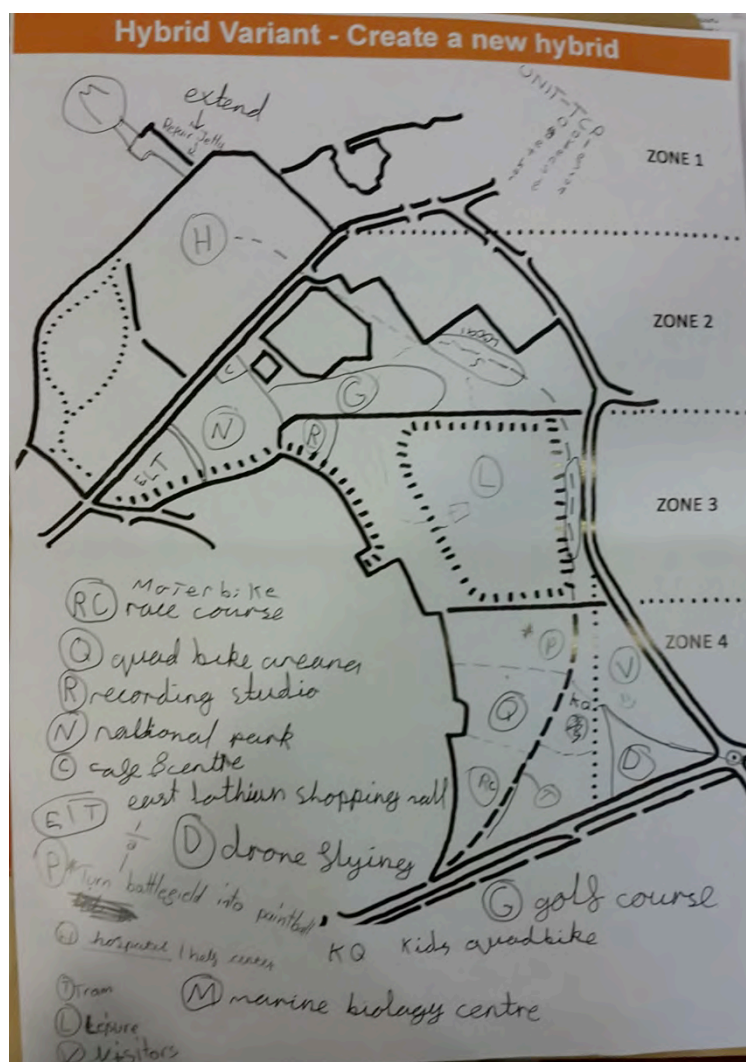 Hybrid Variant - Create a new hybrid
M
extend
Repair Jetty
UNIT-TCP
ZONE 1
H
ZONE 2
Local
S
C
G
N
R
ELT
L
ZONE 3
ZONE 4
* P
V
KQ
Q
D
RC
T
RC Moterbike
race course
Q quad bike areana
R recording studio
N national park
C cafe & centre
ElT east lothian shopping mall
D drone flying
P * Turn battlegield into paintball
G golf course
H hospital / help center
KQ Kids quadbike
T Tram
M marine biology centre
L Leisure
V Visitors